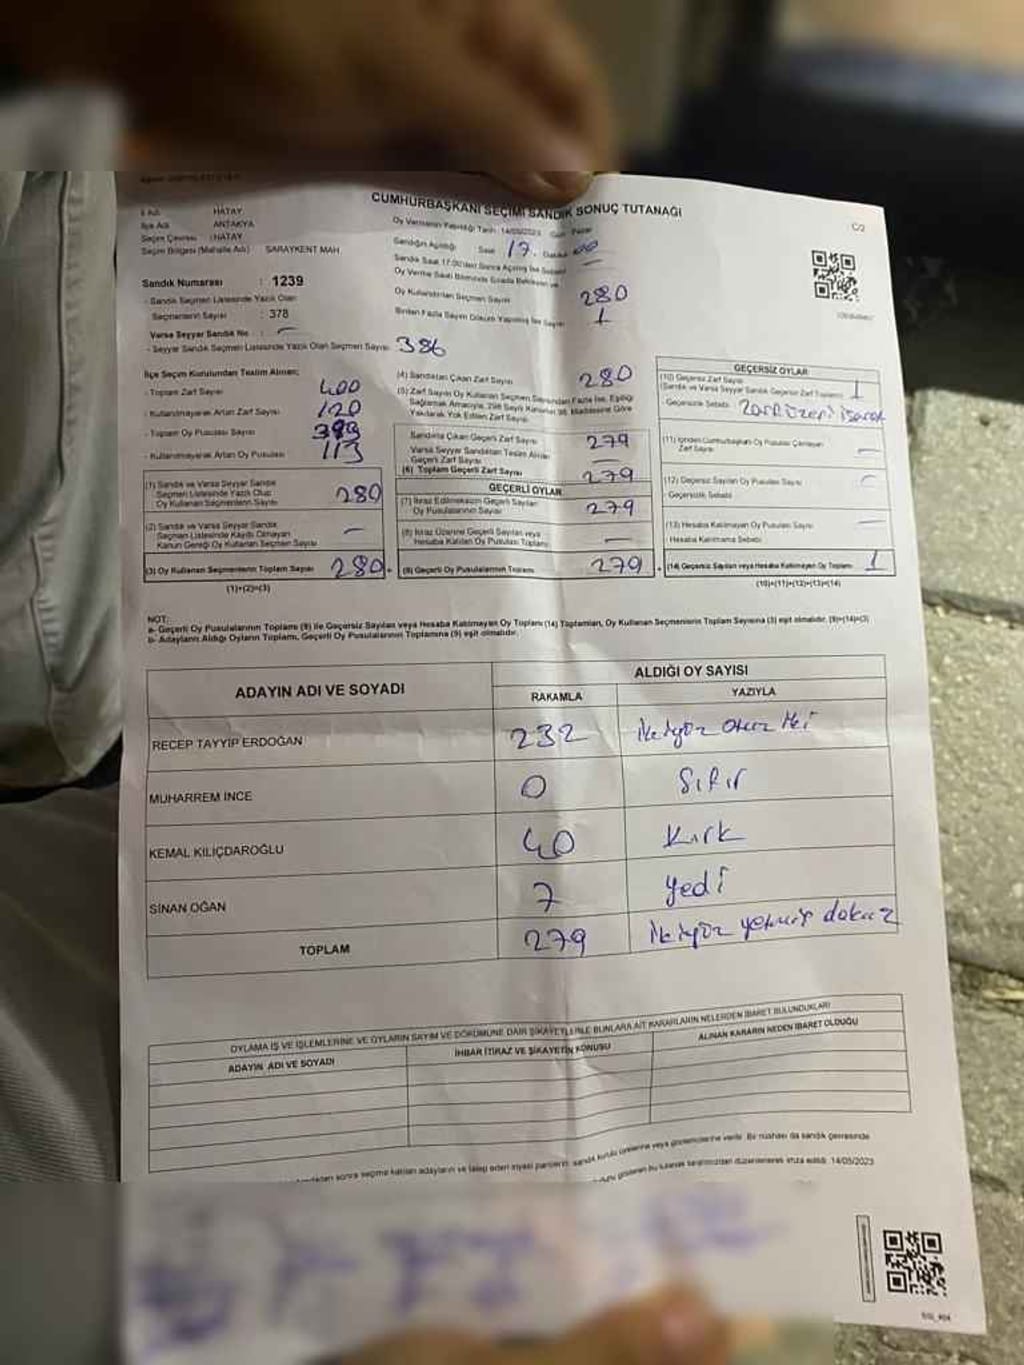 CUMHURBAŞKANI SEÇİMİ SANDIK SONUÇ TUTANAĞI
C/2
İl Adı : HATAY
İlçe Adı : ANTAKYA
Seçim Çevresi : HATAY
Seçim Bölgesi (Mahalle Adı) : SARAYKENT MAH.
Oy Vermenin Yapıldığı Tarih: 14/05/2023 Gün: Pazar
Sandığın Açıldığı Saat 17. Dakika 00
Sandık Numarası : 1239
- Sandık Seçmen Listesinde Yazılı Olan
Seçmenlerin Sayısı : 378
Varsa Seyyar Sandık No : -
- Seyyar Sandık Seçmen Listesinde Yazılı Olan Seçmen Sayısı: 386
Oy Kullandırılan Seçmen Sayısı 280
Birden Fazla Sayım Döküm Yapılmış İse Sayısı 1
İlçe Seçim Kurulundan Teslim Alınan;
- Toplam Zarf Sayısı 400
- Kullanılmayarak Artan Zarf Sayısı 120
- Toplam Oy Pusulası Sayısı 393
- Kullanılmayarak Artan Oy Pusulası 113
(1) Sandık ve Varsa Seyyar Sandık
Seçmen Listesinde Yazılı Olup
Oy Kullanan Seçmenlerin Sayısı 280
(2) Sandık ve Varsa Seyyar Sandık
Seçmen Listesinde Kaydı Olmayan
Kanun Gereği Oy Kullanan Seçmen Sayısı -
(3) Oy Kullanan Seçmenlerin Toplam Sayısı 280
(1)+(2)=(3)
(4) Sandıktan Çıkan Zarf Sayısı 280
(5) Zarf Sayısı Oy Kullanan Seçmen Sayısından Fazla İse, Eşitliği
Sağlamak Amacıyla, 298 Sayılı Kanunun 98. Maddesine Göre
Yakılarak Yok Edilen Zarf Sayısı
Sandıkta Çıkan Geçerli Zarf Sayısı 279
Varsa Seyyar Sandıktan Teslim Alınan
Geçerli Zarf Sayısı -
(6) Toplam Geçerli Zarf Sayısı 279
GEÇERLİ OYLAR
(7) İtiraz Edilmeksizin Geçerli Sayılan
Oy Pusulalarının Sayısı 279
(8) İtiraz Üzerine Geçerli Sayılan veya
Hesaba Katılan Oy Pusulası Toplamı -
(9) Geçerli Oy Pusulalarının Toplamı 279
GEÇERSİZ OYLAR
(10) Geçersiz Zarf Sayısı
(Sandık ve Varsa Seyyar Sandık Geçersiz Zarf Toplamı) 1
- Geçersizlik Sebebi: Zarf üzeri işaret
(11) İçinden Cumhurbaşkanı Oy Pusulası Çıkmayan
Zarf Sayısı -
(12) Geçersiz Sayılan Oy Pusulası Sayısı -
- Geçersizlik Sebebi
(13) Hesaba Katılmayan Oy Pusulası Sayısı -
Hesaba Katılmama Sebebi
(14) Geçersiz Sayılan veya Hesaba Katılmayan Oy Toplamı 1
(10)+(11)+(12)+(13)=(14)
NOT:
a- Geçerli Oy Pusulalarının Toplamı (9) ile Geçersiz Sayılan veya Hesaba Katılmayan Oy Toplamı (14) Toplamları, Oy Kullanan Seçmenlerin Toplam Sayısına (3) eşit olmalıdır. (9)+(14)=(3)
b- Adayların Aldığı Oyların Toplamı, Geçerli Oy Pusulalarının Toplamına (9) eşit olmalıdır.
ADAYIN ADI VE SOYADI
ALDIĞI OY SAYISI
RAKAMLA YAZIYLA
RECEP TAYYİP ERDOĞAN 232 ikiyüz otuz iki
MUHARREM İNCE 0 Sıfır
KEMAL KILIÇDAROĞLU 40 Kırk
SİNAN OĞAN 7 yedi
TOPLAM 279 ikiyüz yetmiş dokuz
OYLAMA İŞ VE İŞLEMLERİNE VE OYLARIN SAYIM VE DÖKÜMÜNE DAİR ŞİKAYETLERLE BUNLARA AİT KARARLARIN NELERDEN İBARET BULUNDUKLARI
ADAYIN ADI VE SOYADI İHBAR İTİRAZ VE ŞİKAYETİN KONUSU ALINAN KARARIN NEDEN İBARET OLDUĞU
sonra seçime katılan adayların ve talep eden siyasi partilerin sandık kurulu üyelerine veya gözlemcilerine verilir. Bir nüshası da sandık çevresinde
gösteren bu tutanak tarafımızdan düzenlenerek imza edildi. 14/05/2023